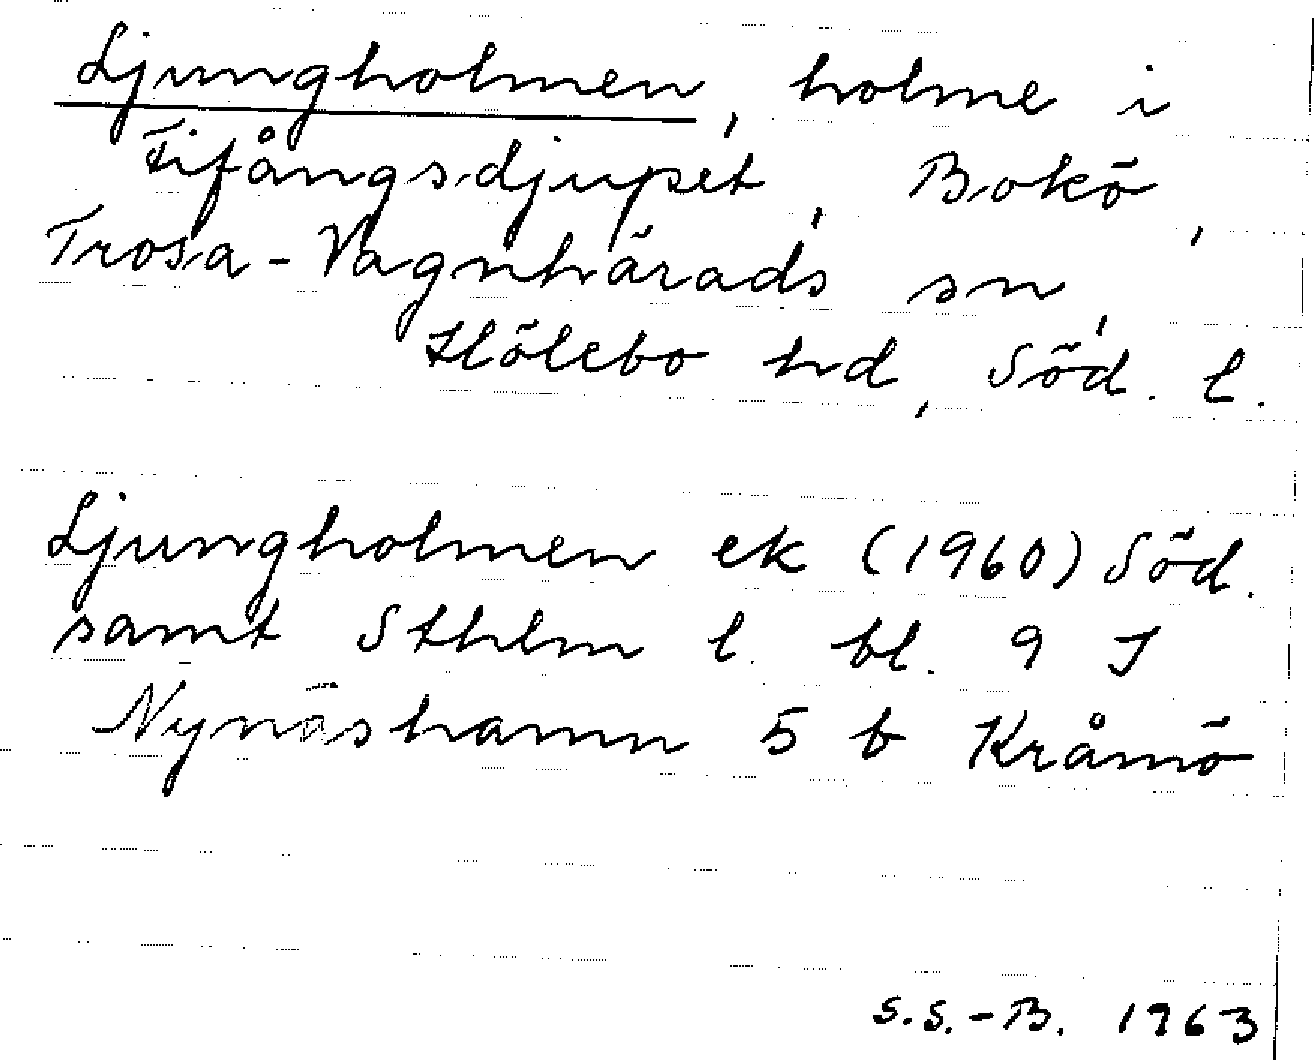 Ljungholmen, holme i
Fifångsdjupet, Bokö,
Trosa-Vagnhärads sn,
Hölebo hd, Söd. l.
Ljungholmen ek (1960) Söd.
samt Sthlm l. bl. 9 I
Nynäshamn 5 b Kråmö
S.S.-B. 1963